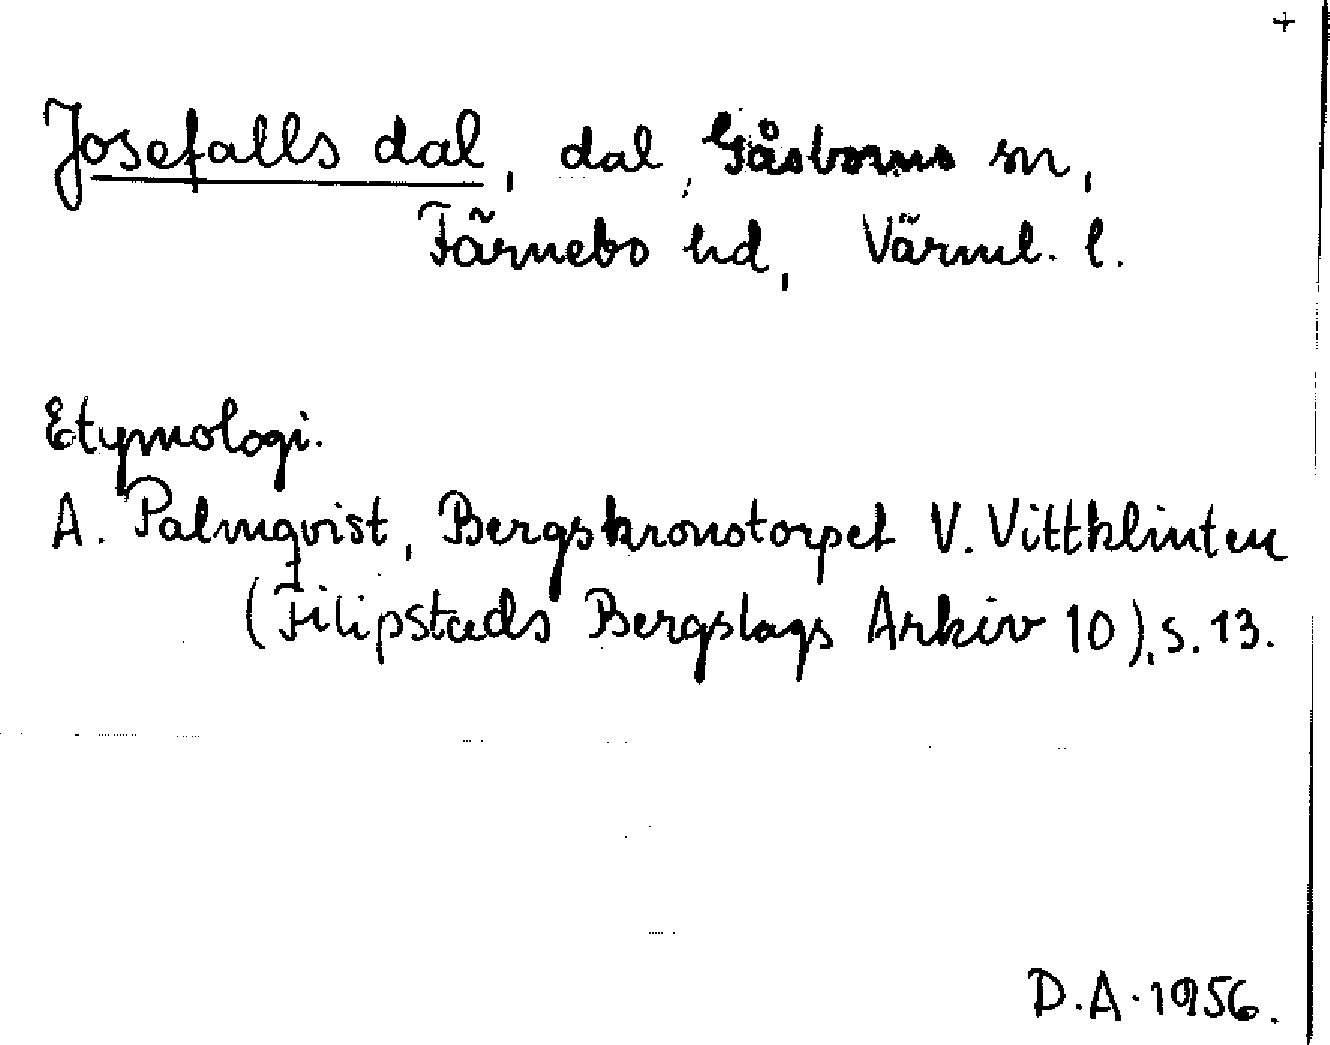 +
Josefalls dal, dal, Gåsborns sn,
Färnebo hd, Värml. l.
Etymologi.
A. Palmqvist, Bergskronstorpet V. Vittklinten
(Filipstads Bergslags Arkiv 10), s. 13.
D.A. 1956.